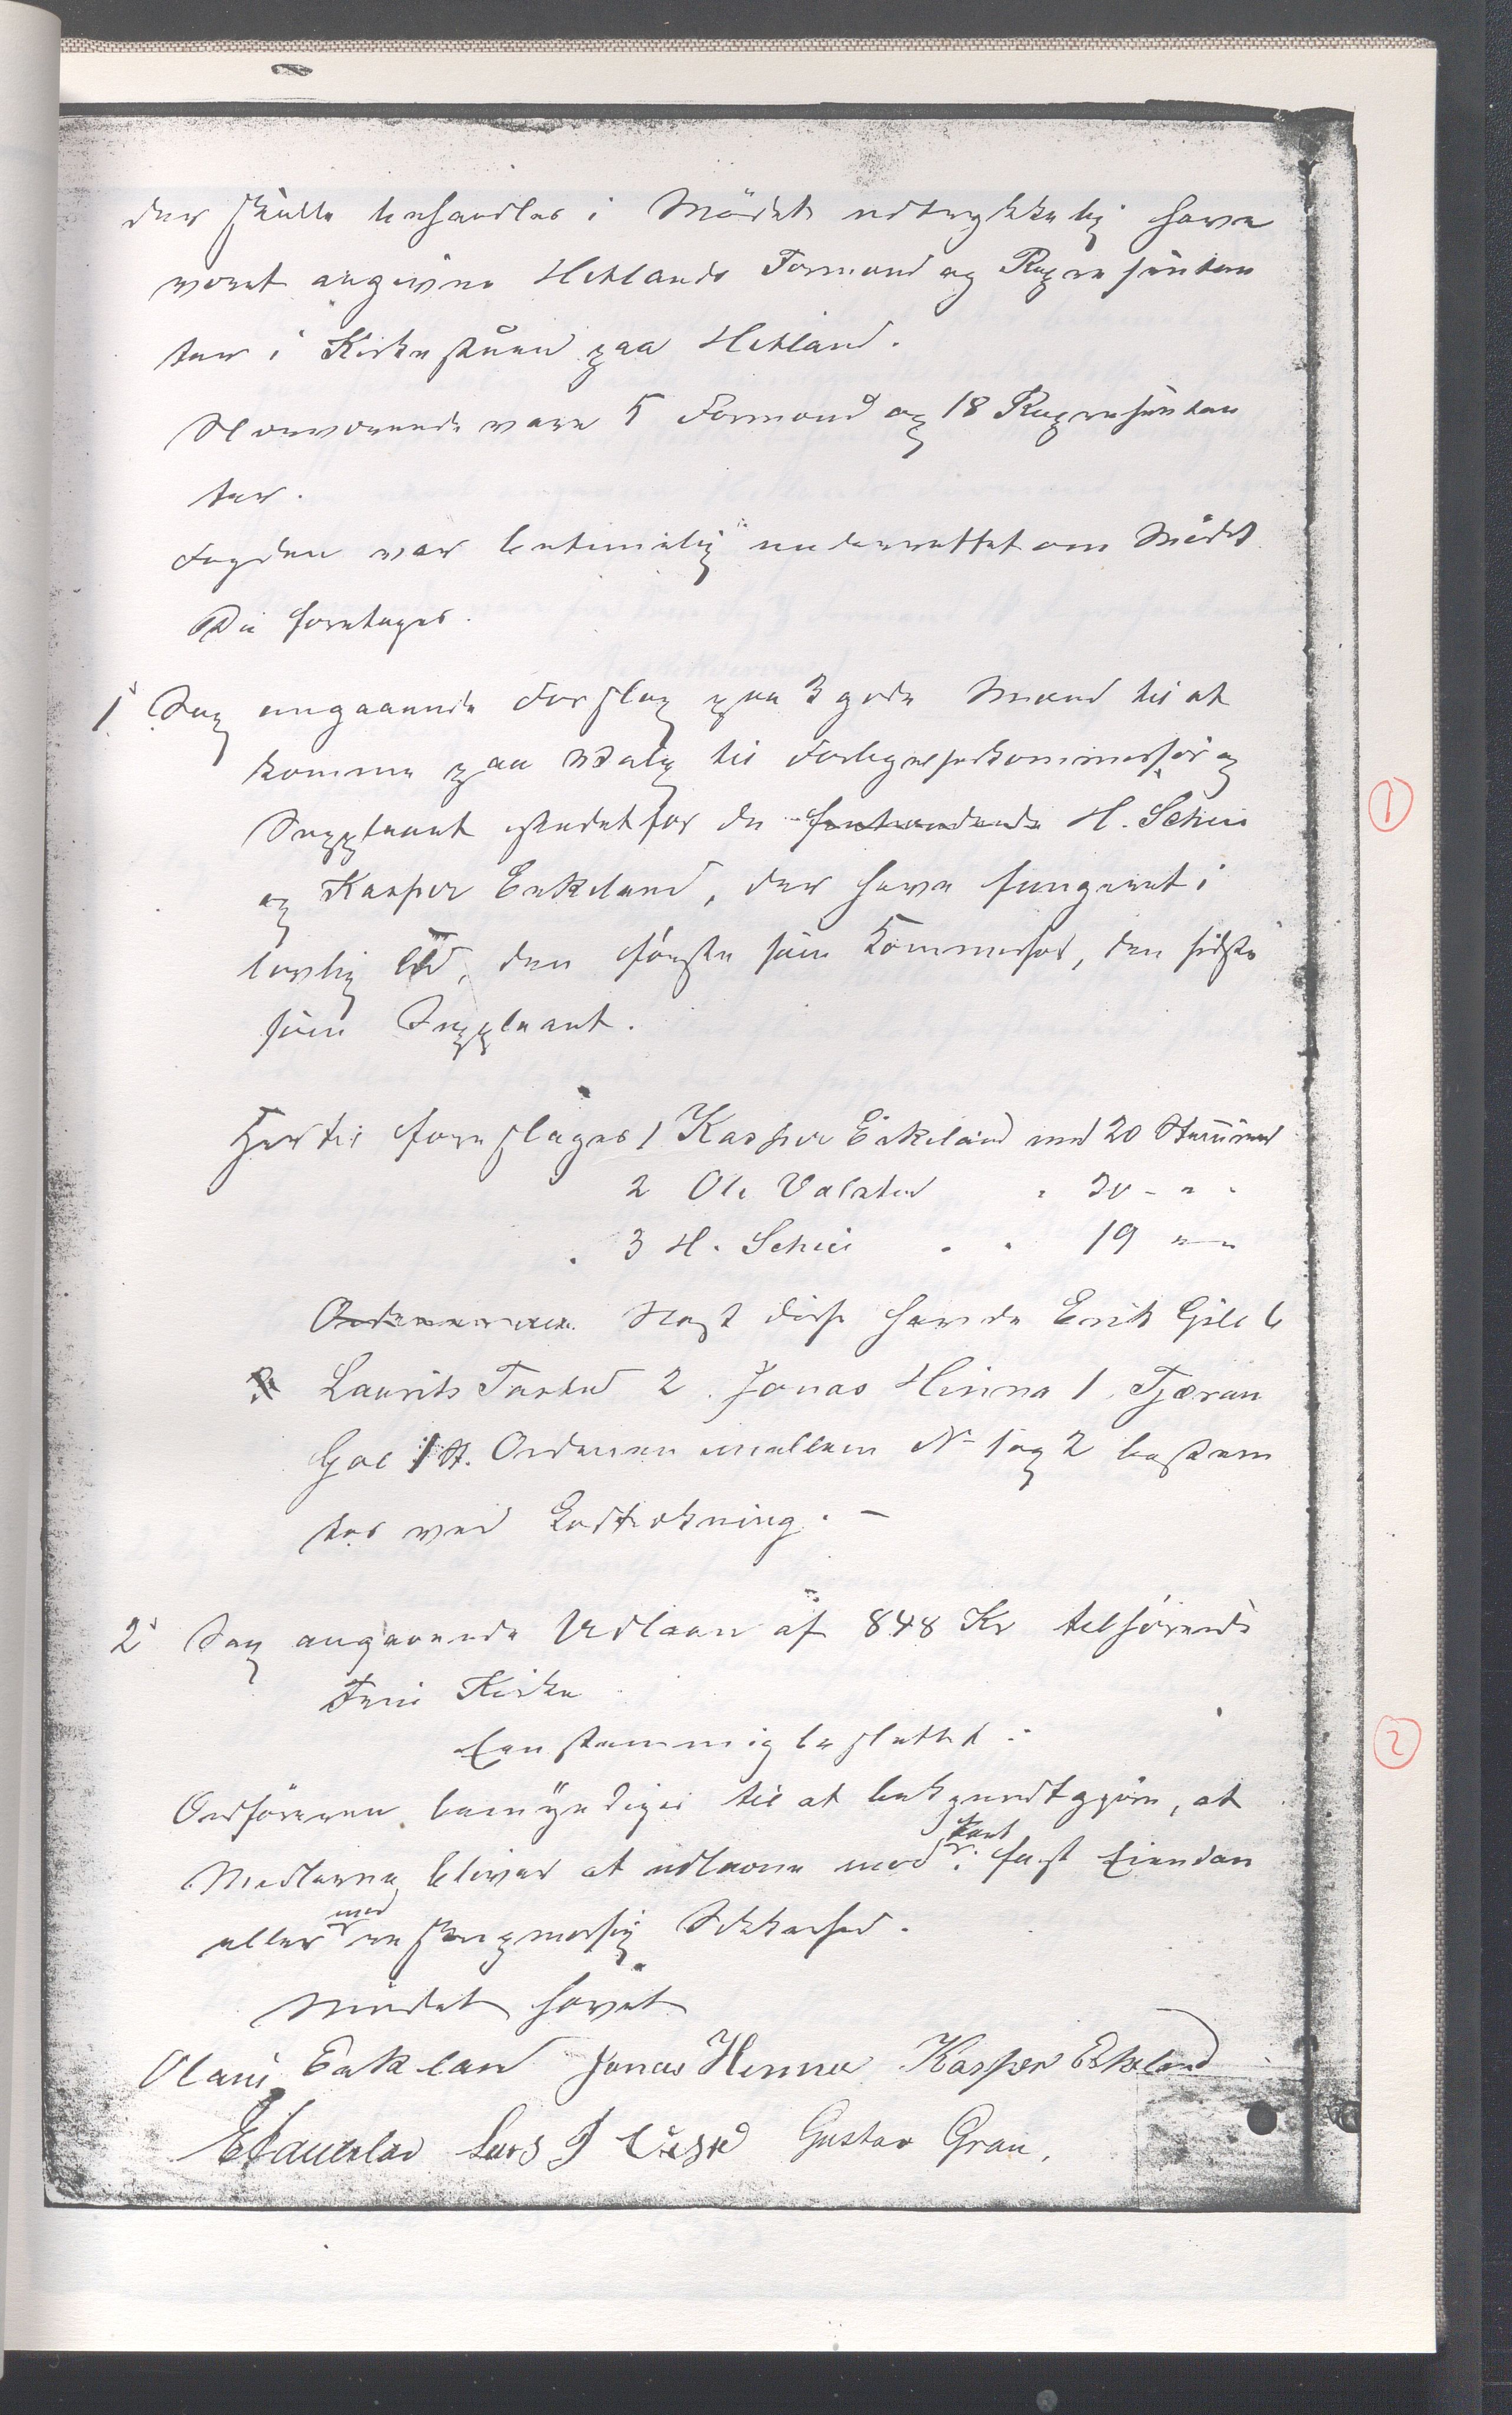 der skulle behandles i Mödet udtrykkelig have
været angivne Hetlands Formænd og Repræsentan
ter i Kirkestuen paa Hetland.
Nærværende vare 5 Formænd og 18 Repræsentan
ter.
Fogden var betimelig underrettet om Mödet
Da foretoges.
1 Sag angaaende Forslag paa 3 gode Mænd til at
komme paa Valg til Forligelseskommissær og
Suppleant istedetfor de fratrædende H. Schei
og Kasper Eskeland, der have fungeret i
lovlig Tid, den förste som Kommissær, den sidste
som Suppleant.
Hertil foresloges 1 Kasper Eskeland med 20 Stemmer
2 Ole Valstad " 20 - " -
3 H. Schei " " 19 " "
Ordenen Næst disse havde Erik 6
Laurits Tasted 2. Jonas Hinna 1, Tjæran
1 St. Ordenen mellem No 1 og 2 bestem
tes ved Lodtrækning. -
2 Sag angaaende Udlaan af 848 Kr tilhörende
Kirke
Eenstemmig besluttet:
Ordföreren bemyndiges til at bekjendtgjöre, at
Midlerne bliver at udlaane mod Pant i fast Eiendom
eller mod en skjögmæssig Sikkerhed.
Mödet hævet
Olaus Eskeland Jonas Hinna Kasper Eskeland
Lars J Gustav Grau.
1
2